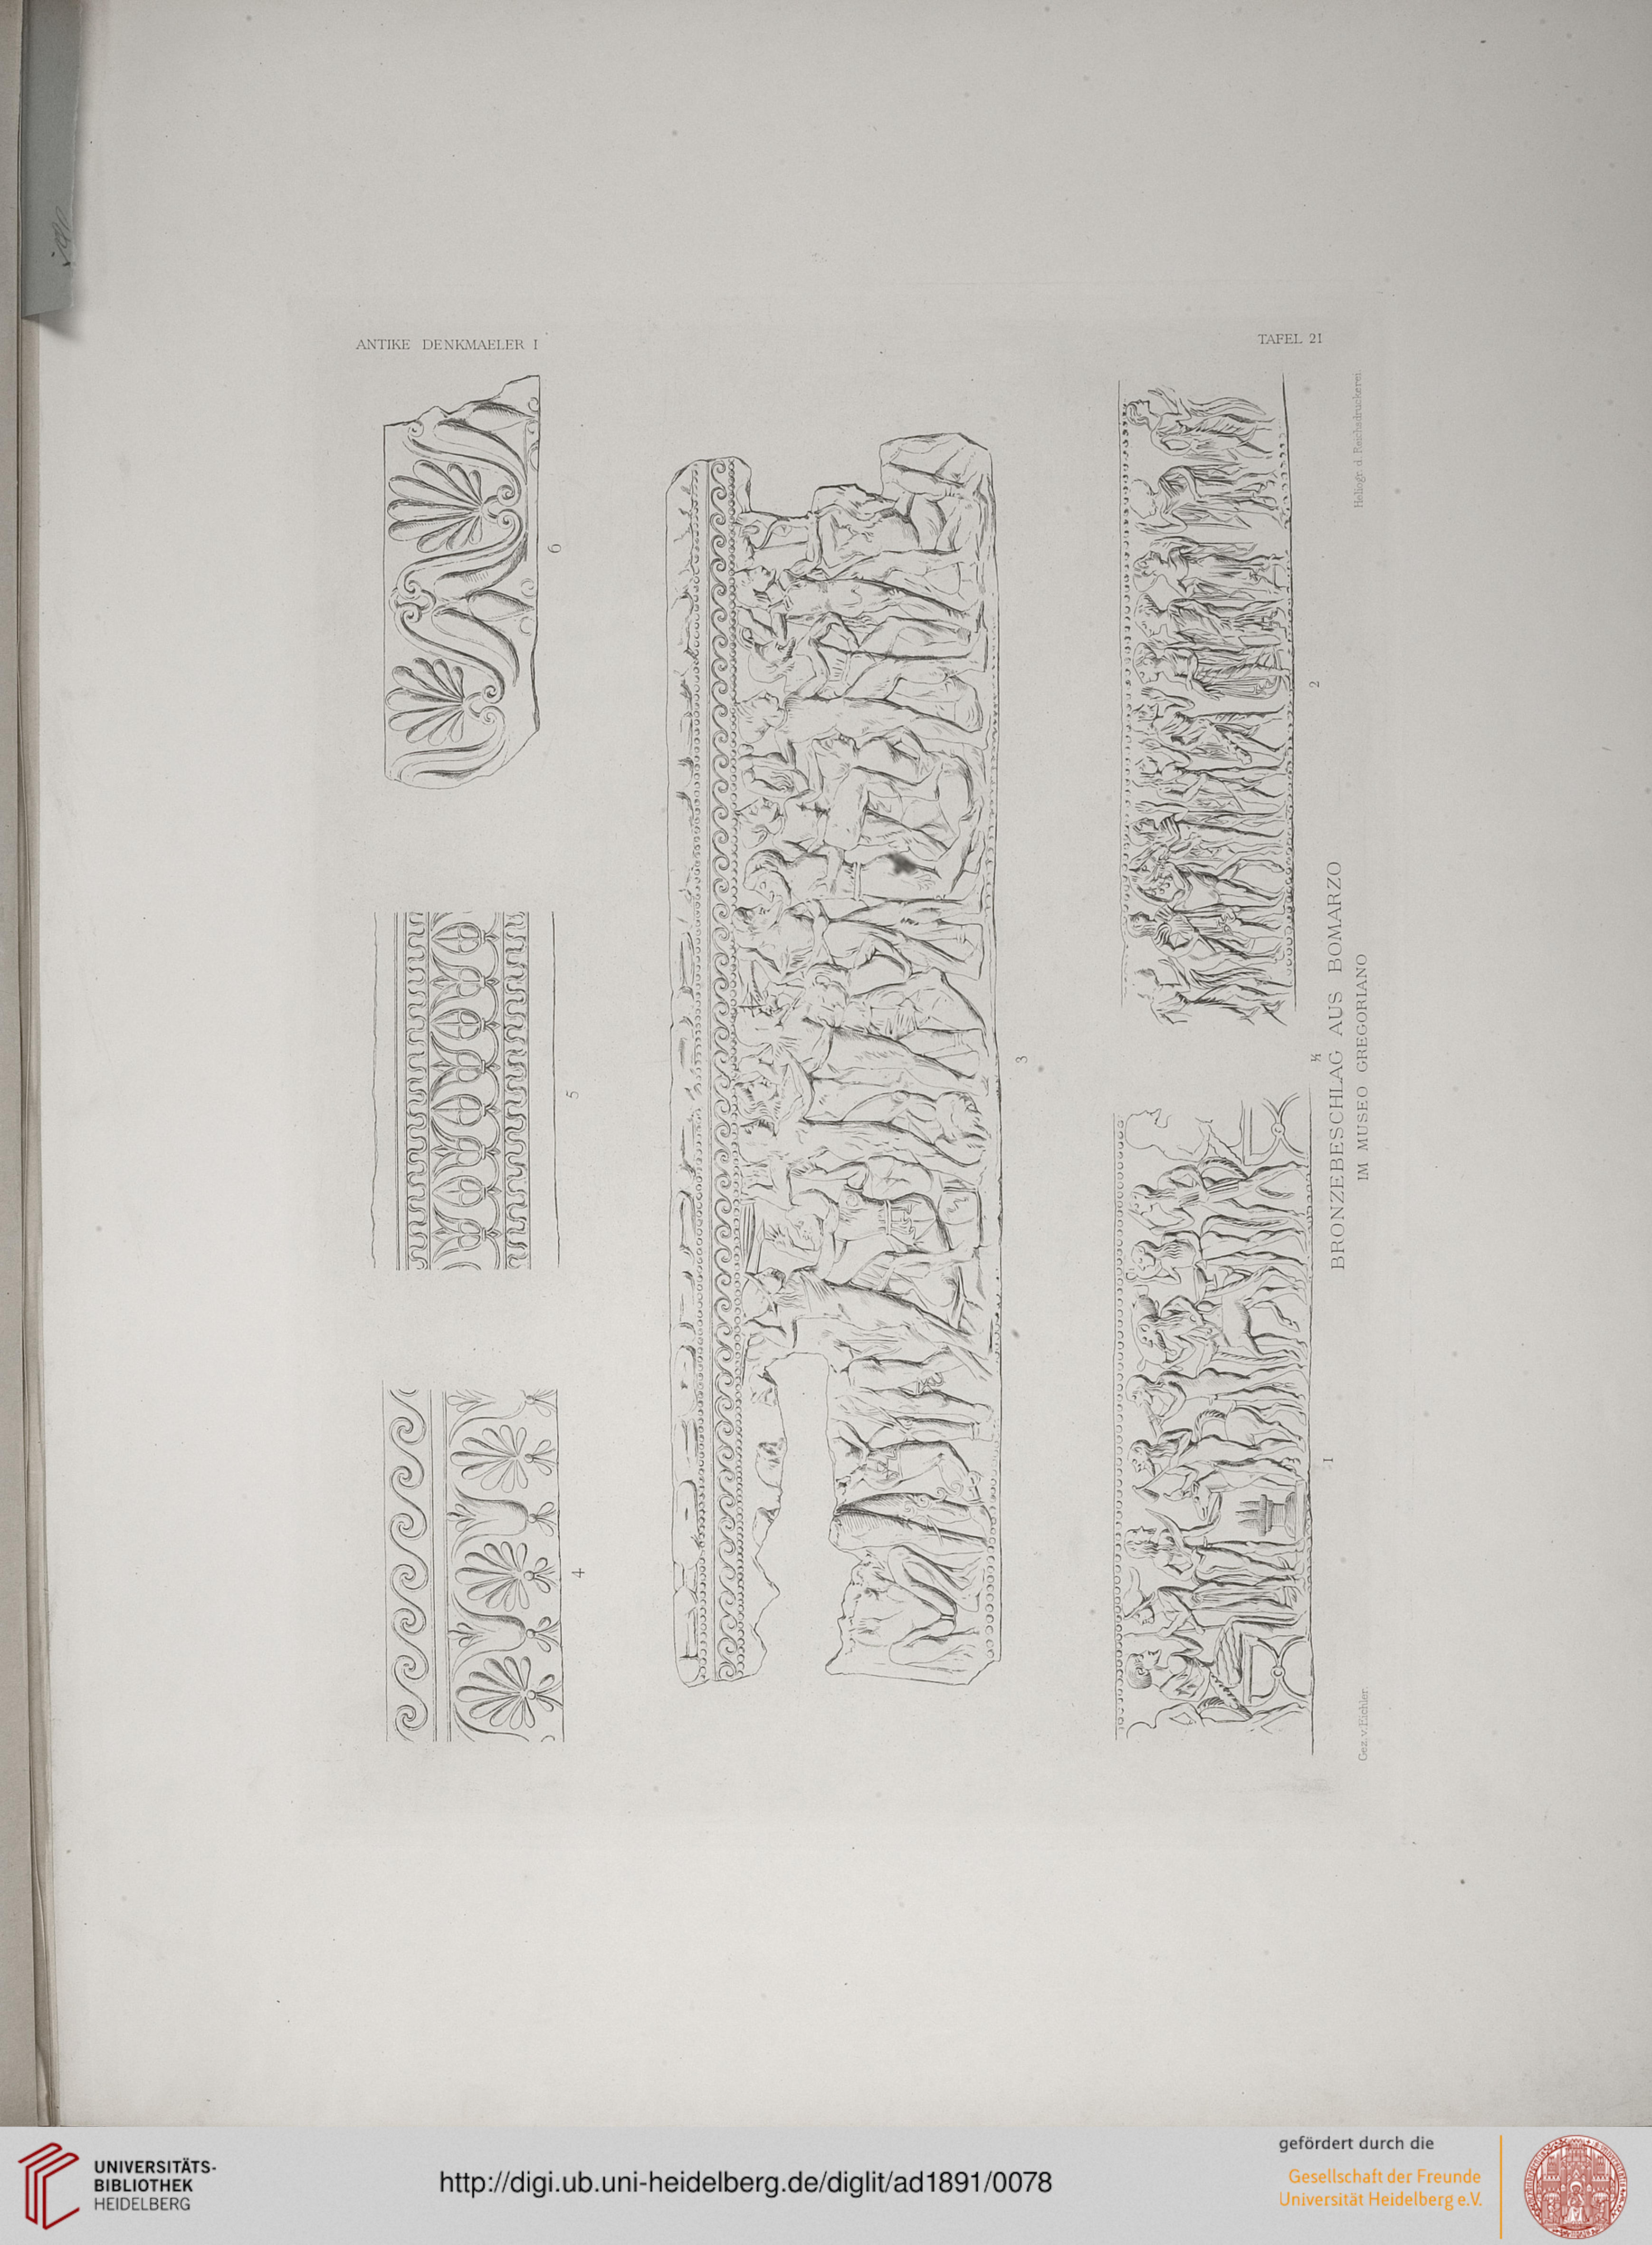 ANTIKE DENKMAELER I
TAFEL 21
6
5
4
3
2
1
½
BRONZEBESCHLAG AUS BOMARZO
IM MUSEO GREGORIANO
Heliogr. d. Reichsdruckerei.
Gez. v. Eichler.
UNIVERSITÄTS-
BIBLIOTHEK
HEIDELBERG
http://digi.ub.uni-heidelberg.de/diglit/ad1891/0078
gefördert durch die
Gesellschaft der Freunde
Universität Heidelberg e.V.